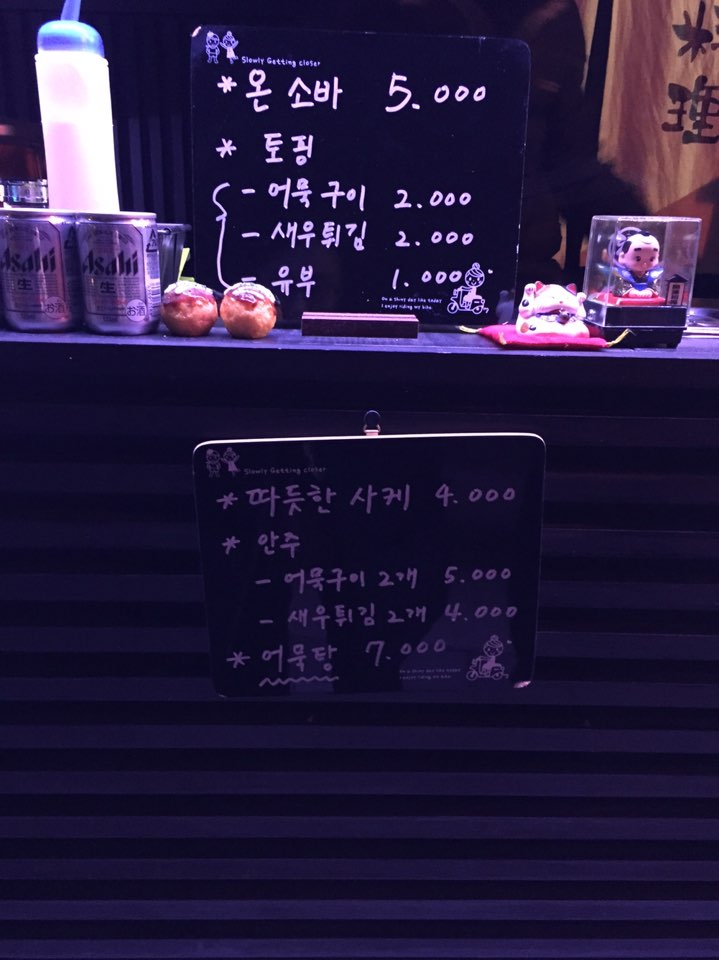 Slowly Getting closer
* 온 소바 5.000
* 토핑
- 어묵구이 2.000
- 새우튀김 2.000
- 유부 1.000
On a Shiny day like today
I enjoy riding my bike.
料
理
Asahi
生
お酒
Asahi
生
お酒
Slowly Getting closer
* 따뜻한 사케 4.000
* 안주
- 어묵구이 2개 5.000
- 새우튀김 2개 4.000
* 어묵탕 7.000
On a Shiny day like today
I enjoy riding my bike.